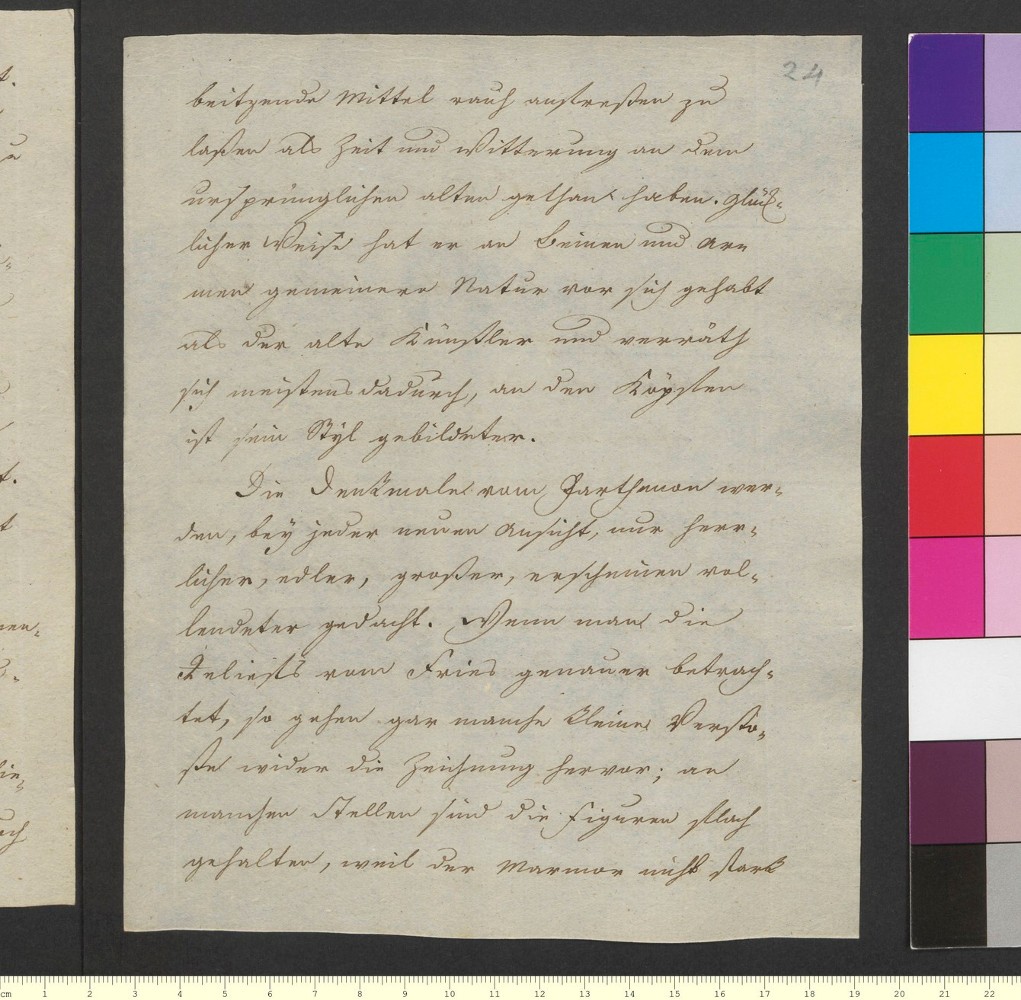 24
beitzende Mittel rauh anfreßen zu
laßen als Zeit und Witterung an dem
ursprünglichen alten gethan haben. Glück-
licher Weise hat er an Beinen und Ar-
men gemeinere Natur vor sich gehabt
als der alte Künstler und verräth
sich meistens dadurch, an den Köpfen
ist sein Styl gebildeter.
Die Denkmale vom Parthenon wer-
den, bey jeder neuen Ansicht, nur herr-
licher, edler, großer, erscheinen vol-
lendeter gedacht. Wenn man die
Reliefs vom Fries genauer betrach-
tet, so gehen gar manche kleine Verstö-
ße wider die Zeichnung hervor; an
manchen Stellen sind die Figuren flach
gehalten, weil der Marmor nicht stark